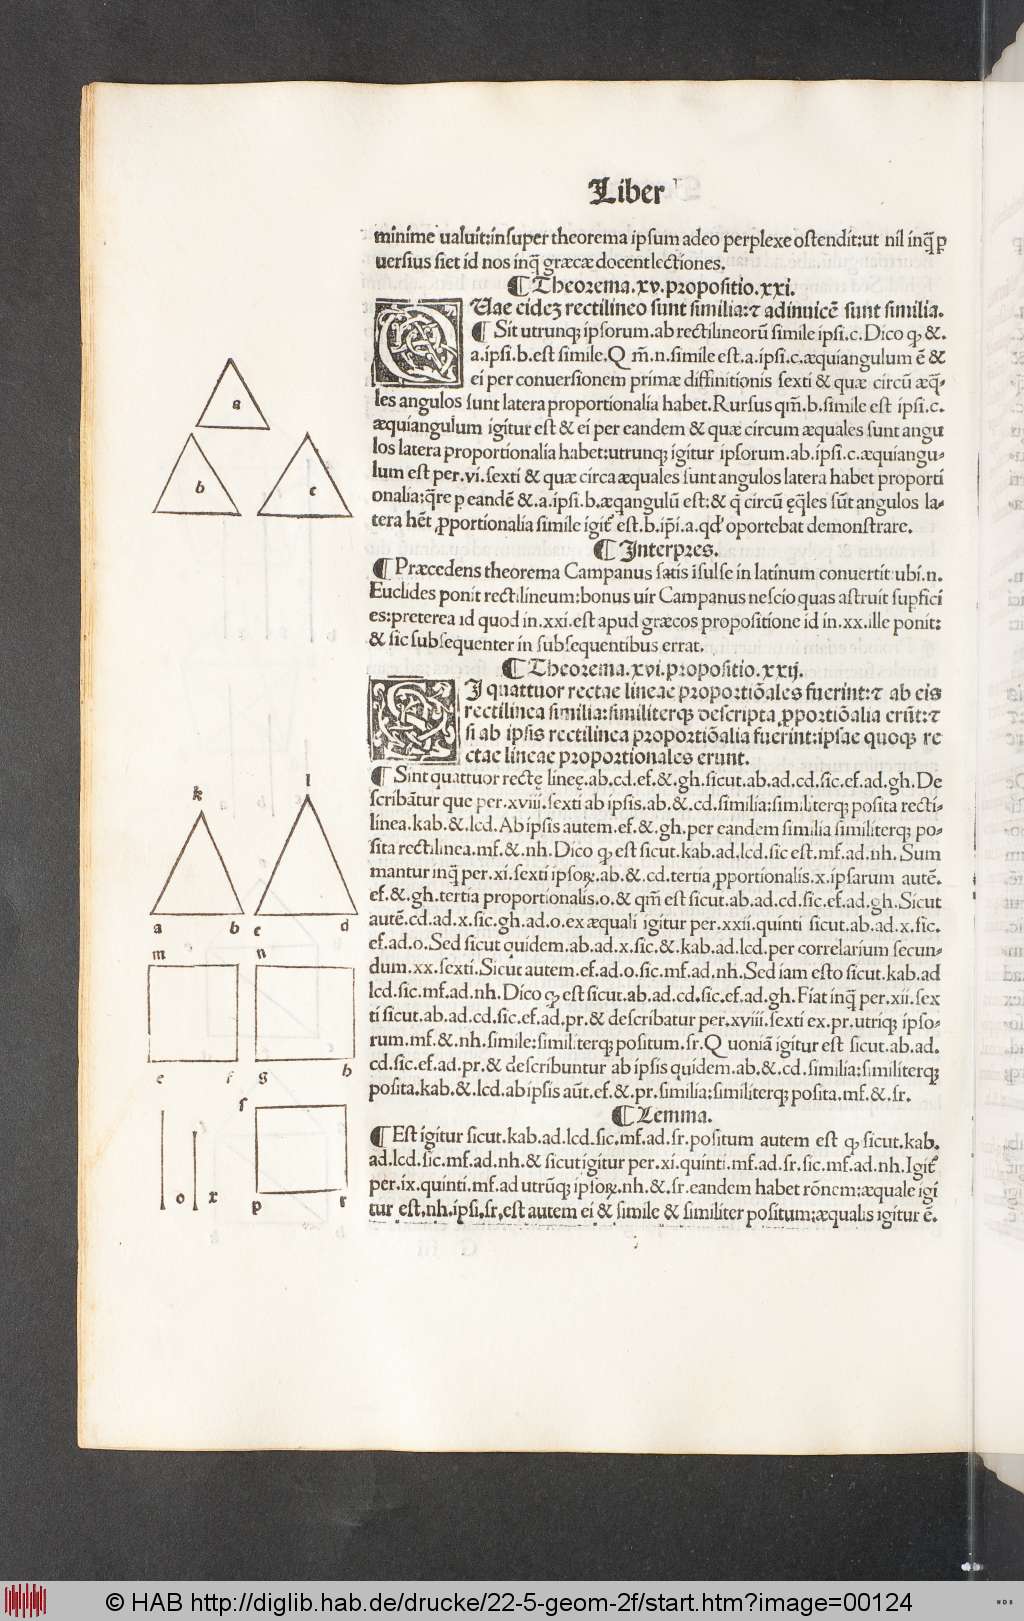 Liber
minime ualuit:insuper theorema ipsum adeo perplexe ostendit:ut nil inq̃ ꝑ
uersius siet id nos inq̃ græcæ docent lectiones.
¶ Theorema.xv.propositio.xxi.
QUae eideʒ rectilineo sunt similia:⁊ adinuicē sunt similia.
¶ Sit utrunqꝫ ipsorum.ab rectilineorū simile ipsi.c.Dico ꝙ &.
a.ipsi.b.est simile.Q m̄.n.simile est.a.ipsi.c.æquiangulum ē &
ei per conuersionem primæ diffinitionis sexti & quæ circū æq̃-
les angulos sunt latera proportionalia habet.Rursus qm̄.b.simile est ipsi.c.
æquiangulum igitur est & ei per eandem & quæ circum æquales sunt angu
los latera proportionalia habet:utrunqꝫ igitur ipsorum.ab.ipsi.c.æquiangu-
lum est per.vi.sexti & quæ circa æquales sunt angulos latera habet proporti
onalia:q̃re ꝑ eandē &.a.ipsi.b.æqangulū est:& q̃ circū ęq̃les sūt angulos la-
tera hēt ꝓportionalia simile igit̃ est.b.ip̄i.a.qd̛ oportebat demonstrare.
¶ Interpres.
¶ Præcedens theorema Campanus satis īsulse in latinum conuertit:ubi.n.
Euclides ponit rectilineum:bonus uir Campanus nescio quas astruit supfici
es:preterea id quod in.xxi.est apud græcos propositione id in.xx.ille ponit:
& sic subsequenter in subsequentibus errat.
¶ Theorema.xvi.propositio.xxij.
SI quattuor rectae lineae proportiōales fuerint:⁊ ab eis
rectilinea similia:similiterqꝫ descripta ꝓportiōalia erūt:⁊
si ab ipsis rectilinea proportiōalia fuerint:ipsae quoqꝫ re
ctae lineae proportionales erunt.
¶ Sint quattuor rectę lineę.ab.cd.ef.&.gh.sicut.ab.ad.cd.sic.ef.ad.gh.De
scribātur que per.xviii.sexti ab ipsis.ab.&.cd.similia:similiterqꝫ posita recti-
linea.kab.&.lcd.Ab ipsis autem.ef.&.gh.per eandem similia similiterqꝫ po-
sita rectilinea.mf.&.nh.Dico ꝙ est sicut.kab.ad.lcd.sic est.mf.ad.nh.Sum
mantur inq̃ per.xi.sexti ipsoꝝ.ab.&.cd.tertia ꝓportionalis.x.ipsarum autē.
ef.&.gh.tertia proportionalis.o.& qm̄ est sicut.ab.ad.cd.sic.ef.ad.gh.Sicut
autē.cd.ad.x.sic.gh.ad.o.ex æquali igitur per.xxii.quinti sicut.ab.ad.x.sic.
ef.ad.o.Sed sicut quidem.ab.ad.x.sic.&.kab.ad.lcd.per correlarium secun-
dum.xx.sexti.Sicut autem.ef.ad.o.sic.mf.ad.nh.Sed iam esto sicut.kab.ad
lcd.sic.mf.ad.nh.Dico ꝙ est sicut.ab.ad.cd.sic.ef.ad.gh.Fiat inq̃ per.xii.sex
ti sicut.ab.ad.cd.sic.ef.ad.pr.& describatur per.xviii.sexti ex.pr.utriqꝫ ipso-
rum.mf.&.nh.simile:similiterqꝫ positum.sr.Q uoniā igitur est sicut.ab.ad.
cd.sic.ef.ad.pr.& describuntur ab ipsis quidem.ab.&.cd.similia:similiterqꝫ
posita.kab.&.lcd.ab ipsis aūt.ef.&.pr.similia:similiterqꝫ posita.mf.&.sr.
¶ Lemma.
¶ Est igitur sicut.kab.ad.lcd.sic.mf.ad.sr.positum autem est ꝙ sicut.kab.
ad.lcd.sic.mf.ad.nh.& sicut igitur per.xi.quinti.mf.ad.sr.sic.mf.ad.nh.Igit̃
per.ix.quinti.mf.ad utrūqꝫ ipsoꝝ.nh.&.sr.eandem habet rōnem:æquale igi
tur est.nh.ipsi.sr.est autem ei & simile & similiter positum:æqualis igitur ē.
a
b c
k l
a b c d
m n
e f g h
s
o x p r
© HAB http://diglib.hab.de/drucke/22-5-geom-2f/start.htm?image=00124